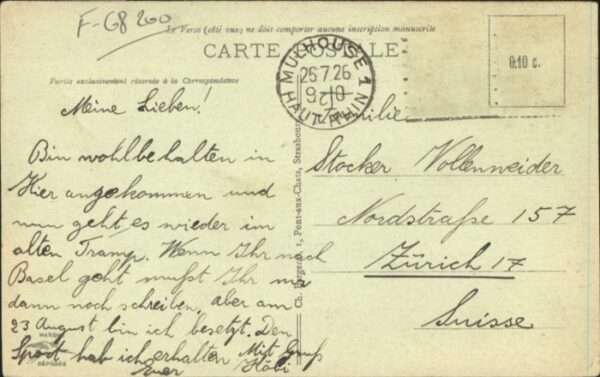 F-68 200
Le Verso (côté vue) ne doit comporter aucune inscription manuscrite
CARTE POSTALE
Partie exclusivement réservée à la Correspondance
MULHOUSE 1
26.7.26
HAUT-RHIN
0.10 c.
Meine Lieben!
Bin wohlbehalten in
Hier angekommen und
nun geht es wieder im
alten Tramp. Wenn Ihr nach
Basel geht mußt Ihr mir
dann noch schreiben, aber am
23 August bin ich besetzt. Den
Sport hab ich erhalten Mit Gruß
Euer
Familie
Stocker Vollenweider
Nordstraße 157
Zürich 17
Suisse
Ch. Bergeret, 1, Pont-aux-Chats, Strasbourg
DÉPOSÉE